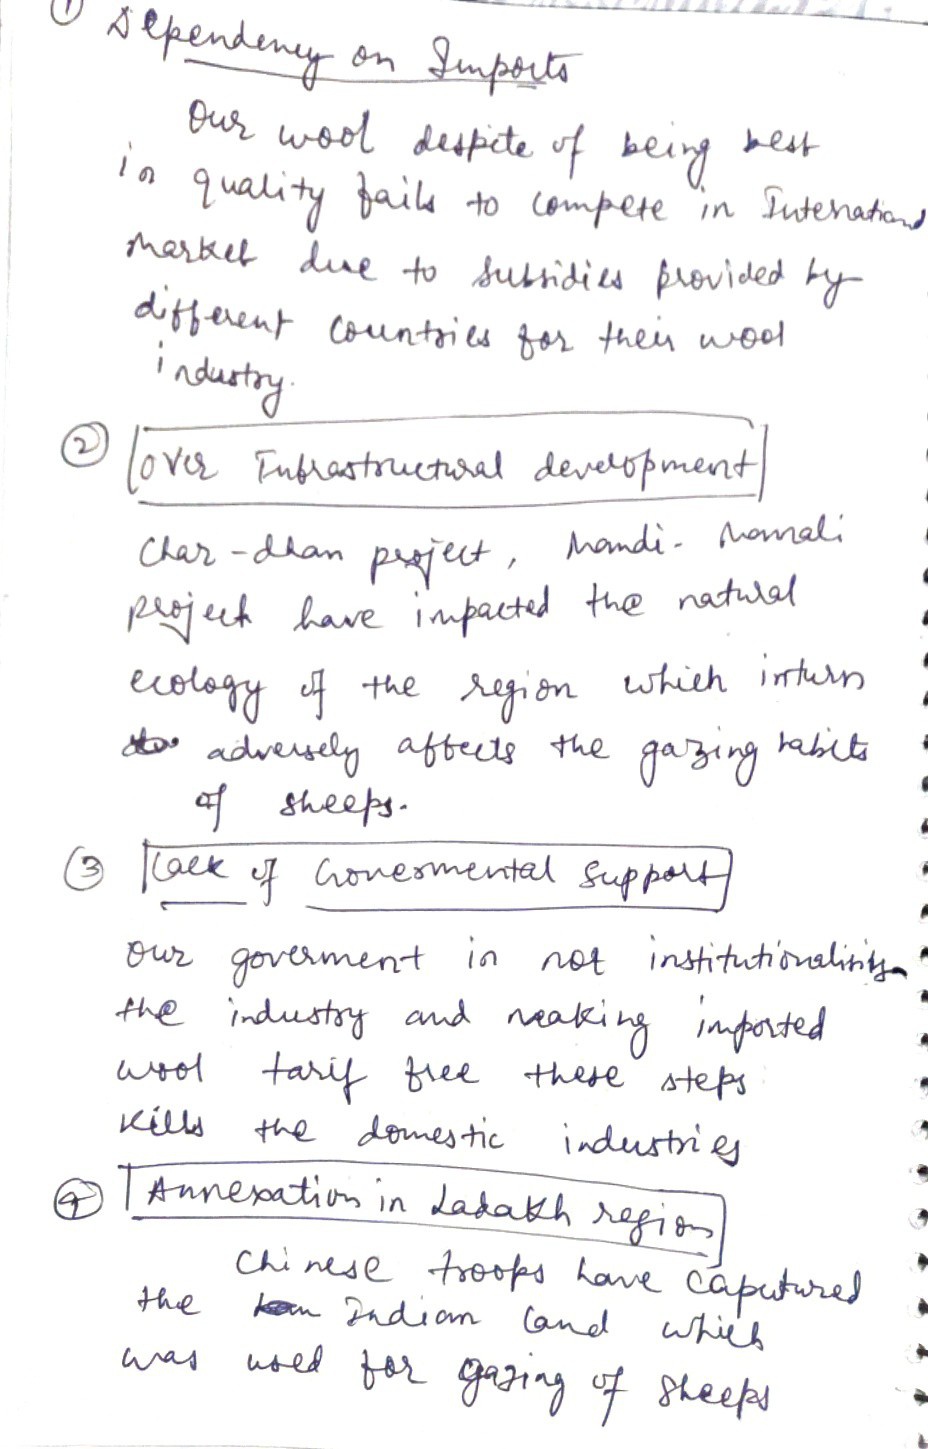 ① Dependency on Imports
Our wool despite of being best
in quality fails to compete in International
market due to subsidies provided by
different countries for their wool
industry.
② Over Infrastructural development
Char-dham project, Mandi-Manali
project have impacted the natural
ecology of the region which inturn
adversely affects the gazing habits
of sheeps.
③ Lack of Govermental Support
our goverment is not institutionalising
the industry and making imported
wool tarif free these steps
kills the domestic industries
④ Annexation in Ladakh region
Chinese troops have caputured
the Indian land which
was used for gazing of sheeps